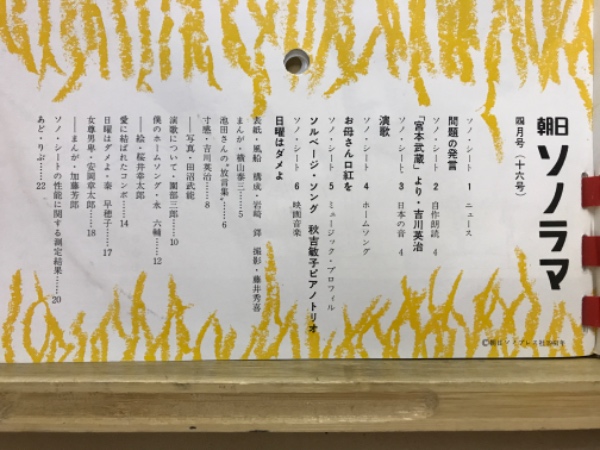 朝日ソノラマ
四月号(十六号)
ソノ・シート 1 ニュース
問題の発言
ソノ・シート 2 自作朗読 4
「宮本武蔵」より・吉川英治
ソノ・シート 3 日本の音 4
演歌
ソノ・シート 4 ホームソング
お母さん口紅を
ソノ・シート 5 ミュージック・プロフィル
ソルベージ・ソング 秋吉敏子ピアノトリオ
ソノ・シート 6 映画音楽
日曜はダメよ
表紙・風船 構成・岩崎 鐸 撮影・藤井秀喜
まんが・横山泰三……5
池田さんの〝放言集〟……6
寸感・吉川英治……8
──写真・田沼武能
演歌について・園部三郎……10
僕のホームソング・永 六輔……12
──絵・桜井幸太郎
愛に結ばれたコンボ……14
日曜はダメよ・秦 早穂子……17
女尊男卑・安岡章太郎……18
──まんが・加藤芳郎
ソノ・シートの性能に関する測定結果……20
あど・りぶ……22